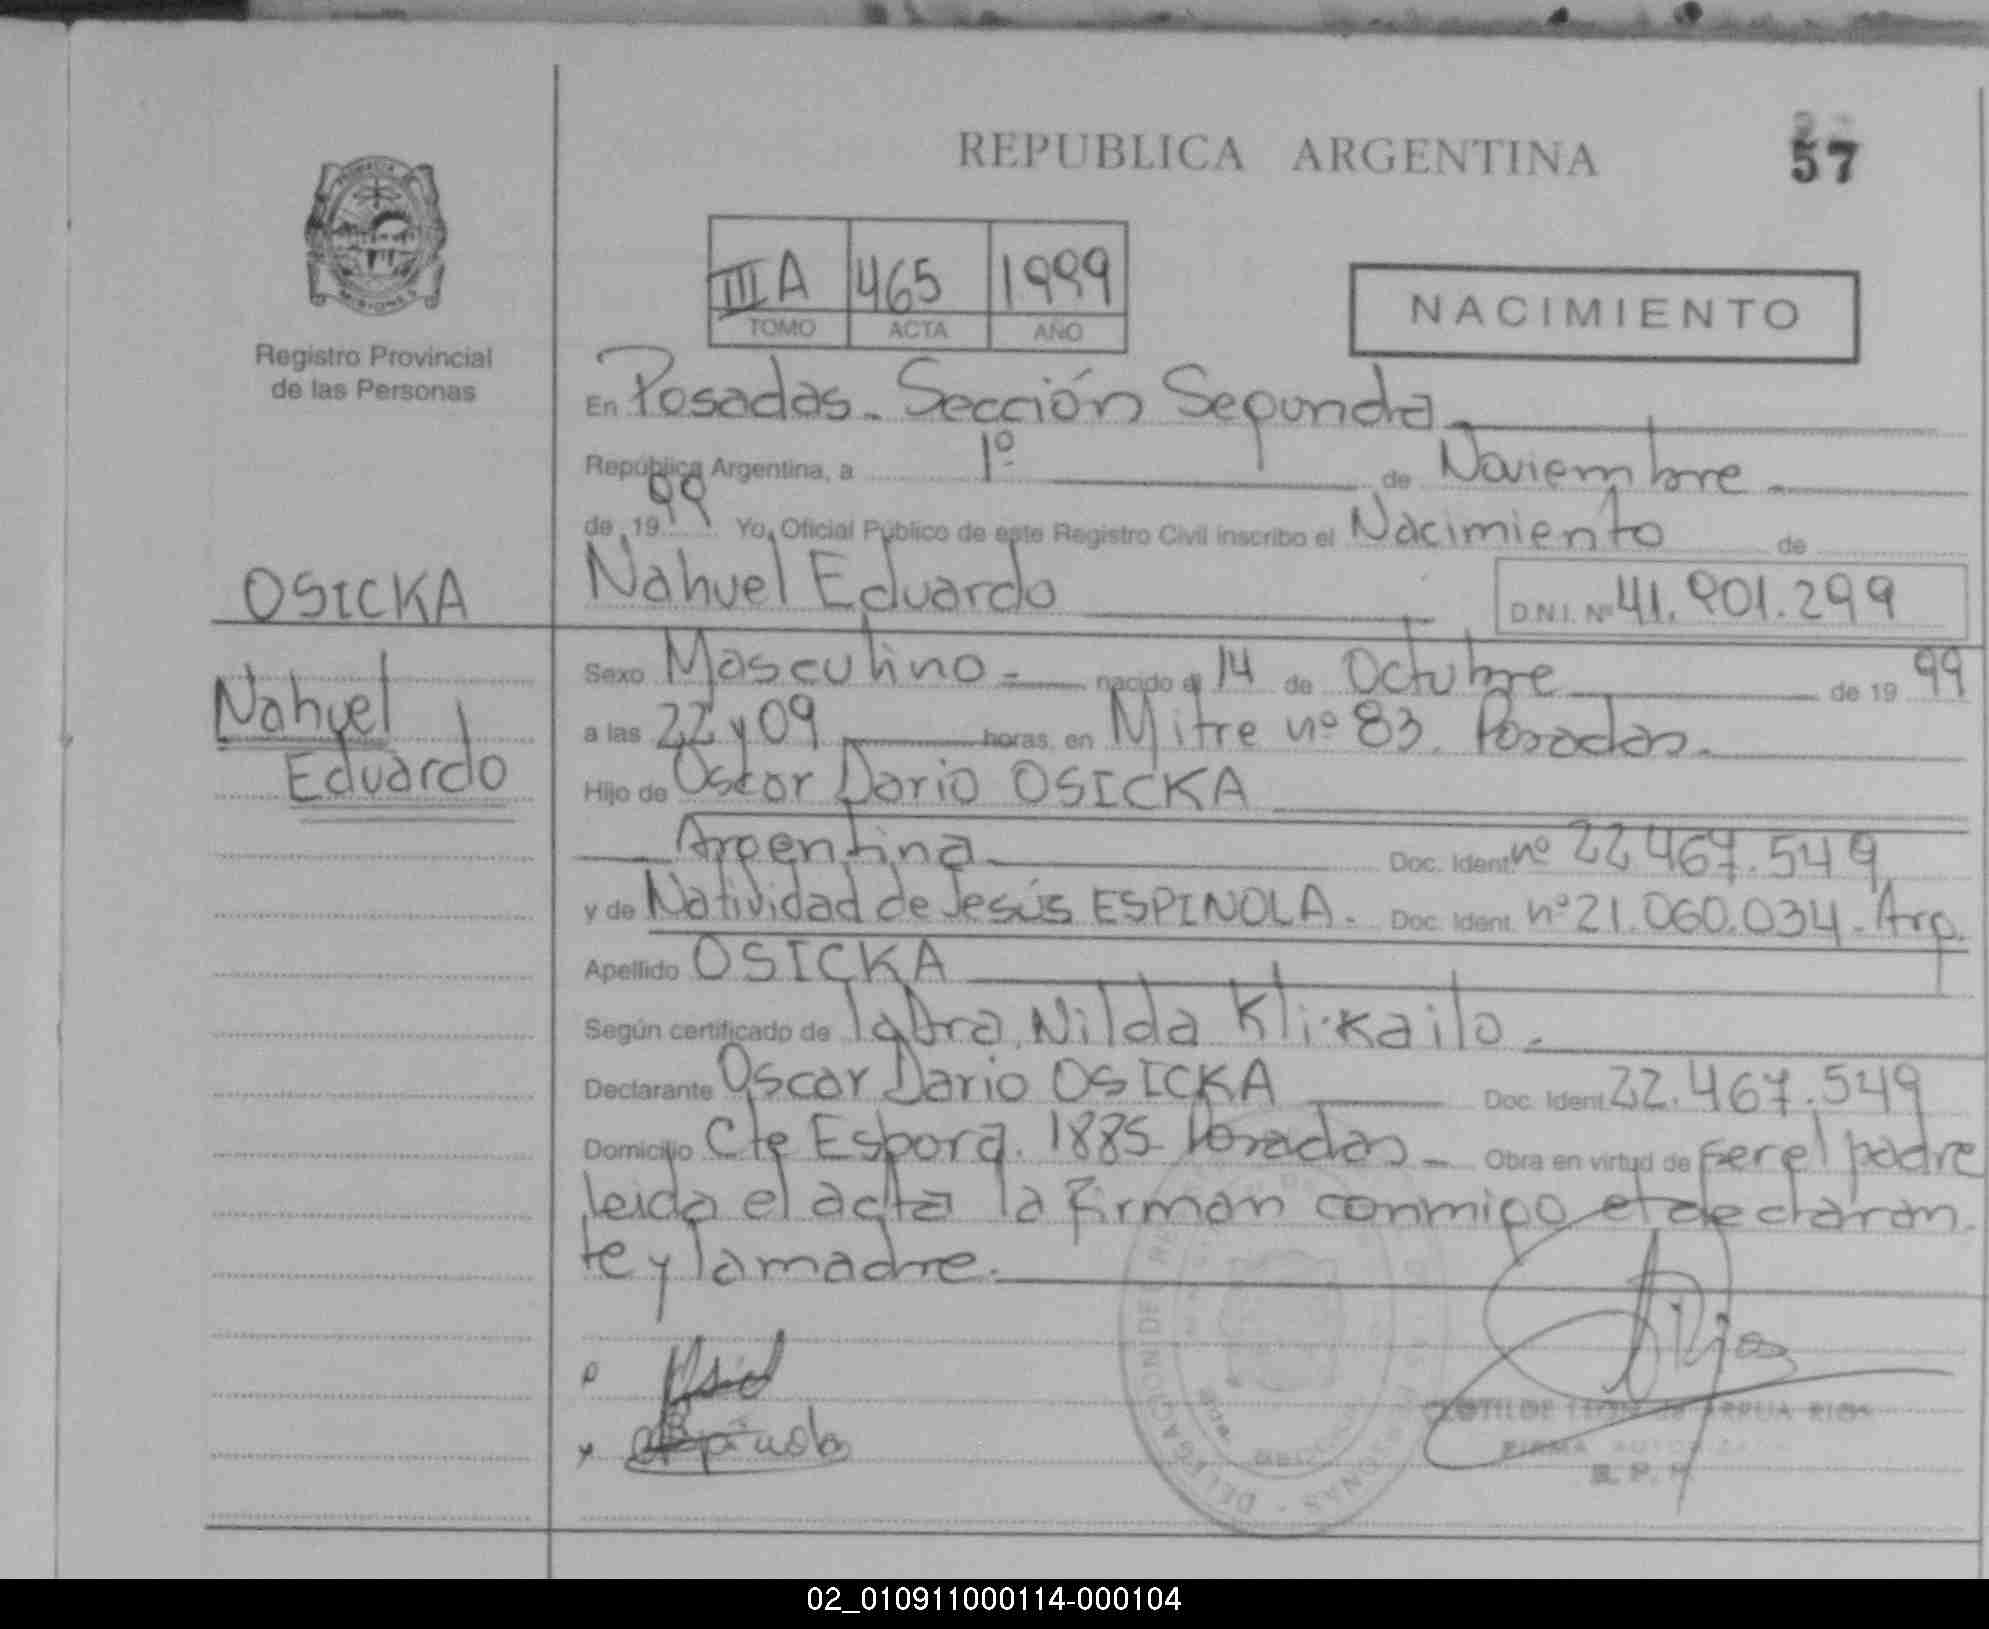 REPUBLICA ARGENTINA
57
III A 465 1999
TOMO ACTA AÑO
NACIMIENTO
MISIONES
Registro Provincial
de las Personas
En Posadas. Sección Segunda
República Argentina, a 1º de Noviembre
de 19 99 Yo, Oficial Público de este Registro Civil inscribo el Nacimiento de
OSICKA
Nahuel Eduardo
D.N.I. Nº 41.901.299
Nahuel
Eduardo
Sexo Masculino nacido el 14 de Octubre de 19 99
a las 22 y 09 horas, en Mitre nº 83. Posadas.
Hijo de Oscar Dario OSICKA
Argentina Doc. Ident. nº 22.467.549
y de Natividad de Jesús ESPINOLA. Doc. Ident. nº 21.060.034 - Arg.
Apellido OSICKA
Según certificado de la Dra. Nilda Klikailo.
Declarante Oscar Dario OSICKA Doc. Ident. 22.467.549
Domicilio Cte Espora. 1885 Posadas - Obra en virtud de ser el padre
leida el acta la firman conmigo el declaran
te y la madre.
FIRMA AUTORIZADA
R. P. P.
02_010911000114-000104